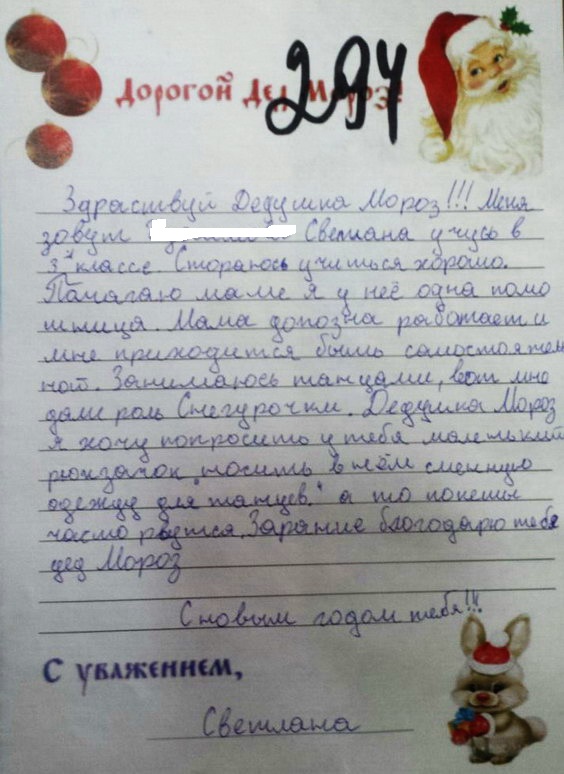 Дорогой Дед Мороз!
294
Здраствуй Дедушка Мороз!!! Меня
зовут Светлана учусь в
3 классе. Стораюсь учиться хорошо.
Памагаю маме я у неё одна помо
шница. Мама допозна работает и
мне приходится быть самостоятель
ной. Занимаюсь танцами, вот мне
дали роль Снегурочки. Дедушка Мороз
я хочу попросить у тебя маленький
рюкзачок "носить в нём сменную
одежду для танцев." а то пакеты
часто рвутся. Зарание благодарю тебя
дед Мороз
С новым годом тебя!!!
С уважением,
Светлана